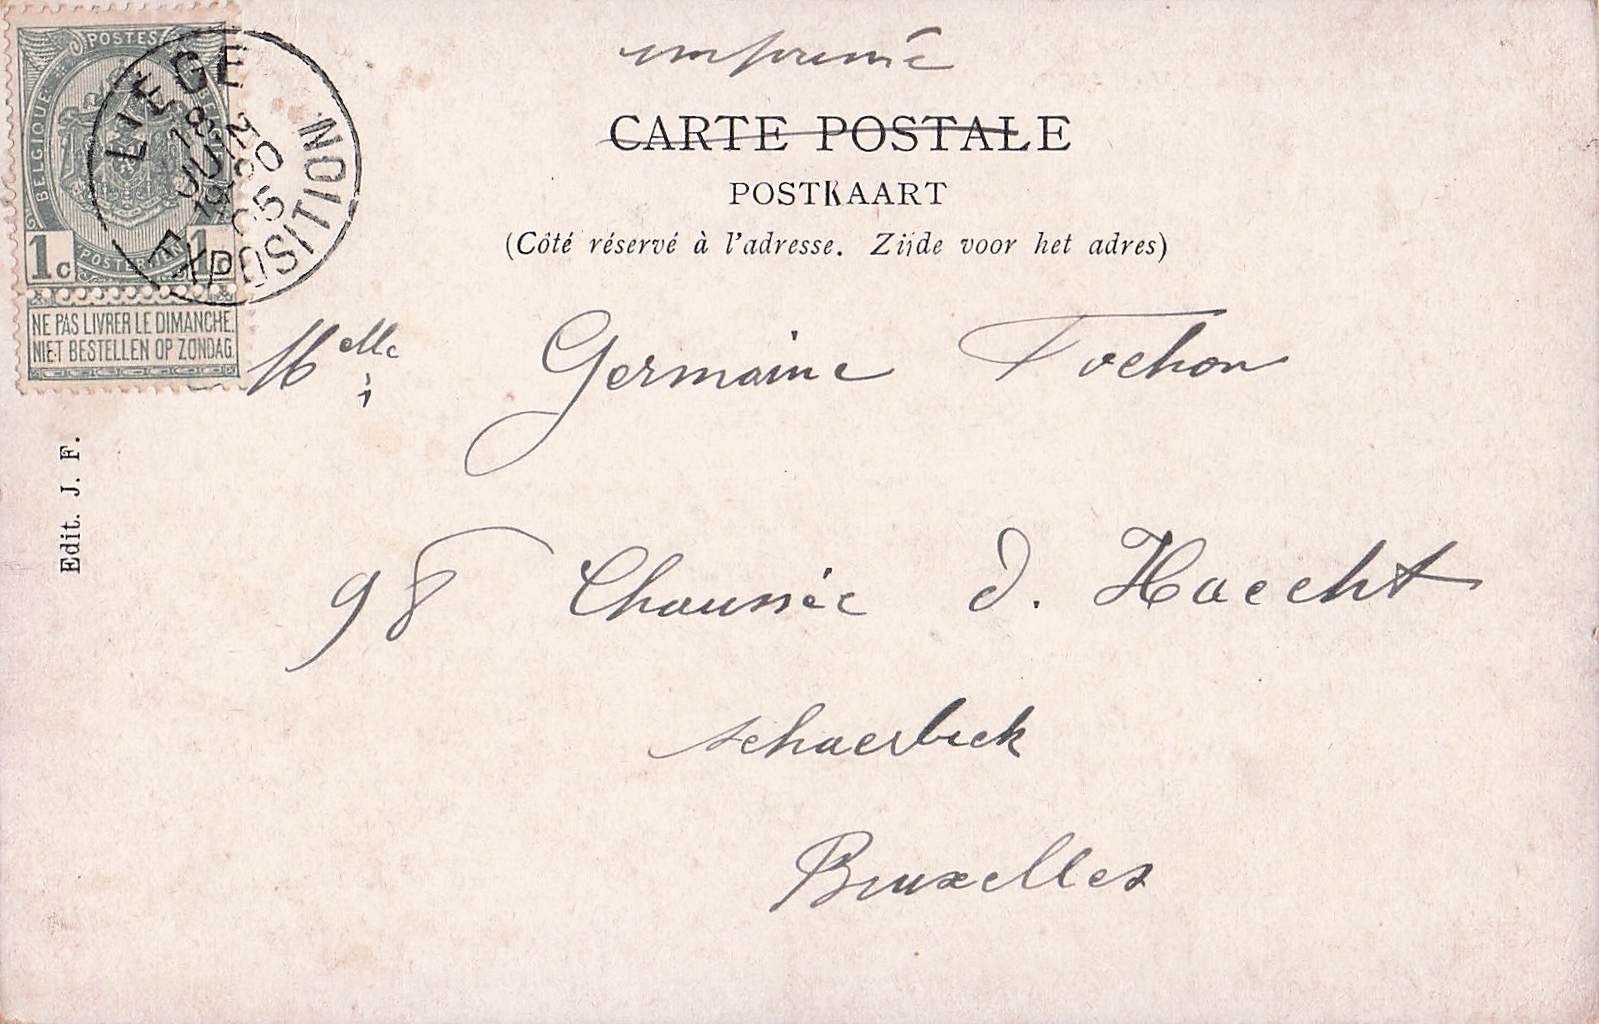 imprimé
CARTE POSTALE
POSTKAART
(Côté réservé à l'adresse. Zijde voor het adres)
POSTES
BELGIQUE
1c 1c
POSTERIJEN
NE PAS LIVRER LE DIMANCHE.
NIET BESTELLEN OP ZONDAG.
LIEGE
EXPOSITION
Melle Germaine Fochon
98 Chaussée d. Haecht
schaerbeek
Bruxelles
Edit. J. F.